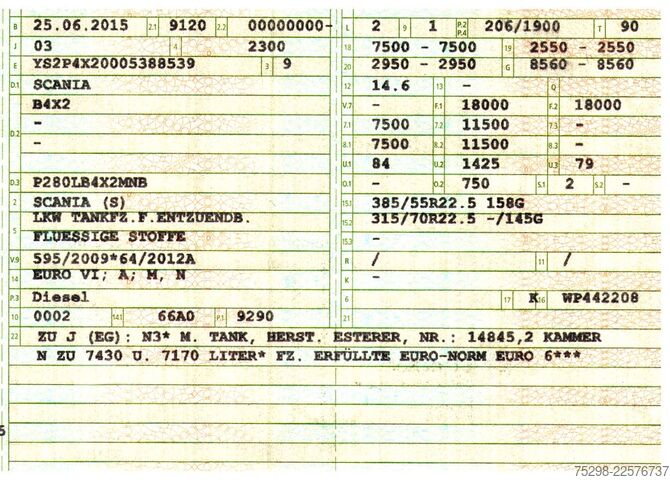 B 25.06.2015 2.1 9120 2.2 00000000- L 2 9 1 P.2 P.4 206/1900 T 90
J 03 4 2300 18 7500 - 7500 19 2550 - 2550
E YS2P4X20005388539 3 9 20 2950 - 2950 G 8560 - 8560
D.1 SCANIA 12 14.6 13 - Q
B4X2 V.7 - F.1 18000 F.2 18000
D.2 - 7.1 7500 7.2 11500 7.3 -
- 8.1 7500 8.2 11500 8.3 -
U.1 84 U.2 1425 U.3 79
D.3 P280LB4X2MNB O.1 - O.2 750 S.1 2 S.2 -
2 SCANIA (S) 15.1 385/55R22.5 158G
5 LKW TANKFZ.F.ENTZUENDB. 15.2 315/70R22.5 -/145G
FLUESSIGE STOFFE 15.3 -
V.9 595/2009*64/2012A R / 11 /
14 EURO VI; A; M, N K -
P.3 Diesel 6 17 K 16 WP442208
10 0002 14.1 66A0 P.1 9290 21
22 ZU J (EG): N3* M. TANK, HERST. ESTERER, NR.: 14845,2 KAMMER
N ZU 7430 U. 7170 LITER* FZ. ERFÜLLTE EURO-NORM EURO 6***
75298-22576737